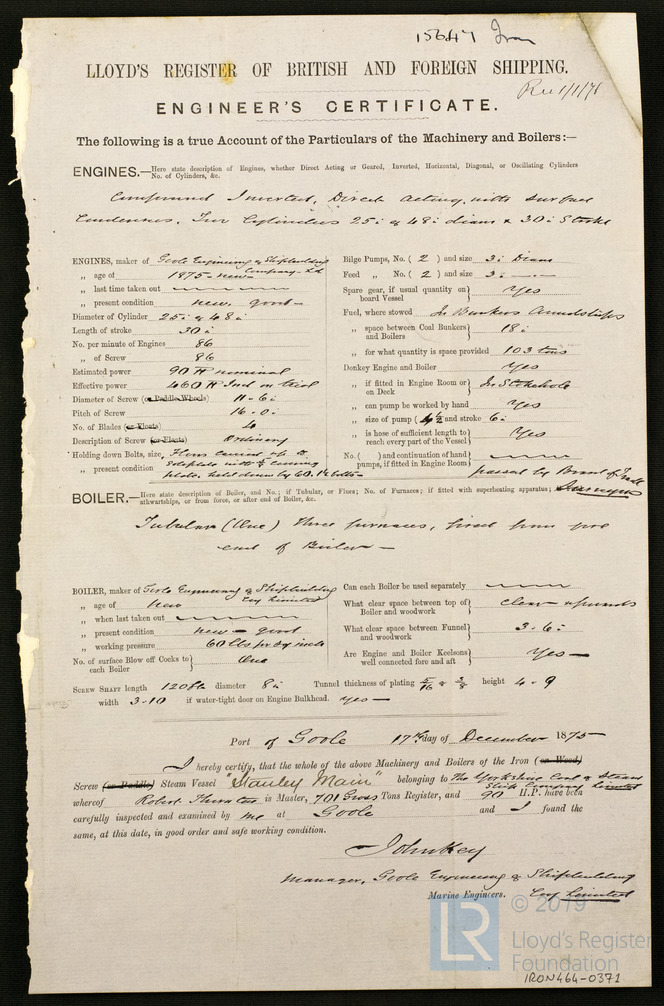 15647 Iron
LLOYD'S REGISTER OF BRITISH AND FOREIGN SHIPPING.
Rec 1/1/76
ENGINEER'S CERTIFICATE.
The following is a true Account of the Particulars of the Machinery and Boilers:—
ENGINES.—Here state description of Engines, whether Direct Acting or Geared, Inverted, Horizontal, Diagonal, or Oscillating Cylinders
No. of Cylinders, &c.
Compound Inverted, Direct Acting, with Surface
Condensers. Two Cylinders 25 & 48 diams & 30 Stroke
ENGINES, maker of Goole Engineering & Shipbuilding
Company Ld
„ age of 1875 - new
„ last time taken out
„ present condition new, good
Diameter of Cylinder 25 & 48
Length of stroke 30
No. per minute of Engines 86
„ of Screw 86
Estimated power 90 H nominal
Effective power 460 H Ind on trial
Diameter of Screw (or Paddle Wheels) 11-6
Pitch of Screw 16-0
No. of Blades (or Floats) 4
Description of Screw (or Floats) Ordinary
Holding down Bolts, size, Floors carried up to
„ present condition Soleplate with
plate, held down by 60. bolts
Bilge Pumps, No. ( 2 ) and size 3 Diam
Feed „ No. ( 2 ) and size 3
Spare gear, if usual quantity on board Vessel Yes
Fuel, where stowed In Bunkers Amidships
„ space between Coal Bunkers and Boilers 18
„ for what quantity is space provided 103 tons
Donkey Engine and Boiler Yes
„ if fitted in Engine Room or on Deck In Stokehole
„ can pump be worked by hand Yes
„ size of pump ( 4½ and stroke 6
„ is hose of sufficient length to reach every part of the Vessel Yes
No. ( ) and continuation of hand pumps, if fitted in Engine Room
passed by Board of Trade
Surveyors
BOILER.—Here state description of Boiler, and No.; if Tubular, or Flues; No. of Furnaces; if fitted with superheating apparatus;
athwartships, or from force, or after end of Boiler, &c.
Tubular (One) three furnaces, fired from fore
end of Boiler —
BOILER, maker of Goole Engineering & Shipbuilding
Coy Limited
„ age of New
„ when last taken out
„ present condition new - good
„ working pressure 60 lbs pr sq inch
No. of surface Blow off Cocks to each Boiler One
Can each Boiler be used separately
What clear space between top of Boiler and woodwork clear upwards
What clear space between Funnel and woodwork 3-6
Are Engine and Boiler Keelsons well connected fore and aft Yes —
SCREW SHAFT length 120ft diameter 8 Tunnel thickness of plating 5/16 & 3/8 height 4-9
width 3-10 if water-tight door on Engine Bulkhead. yes —
Port of Goole 17th day of December 1875
I hereby certify, that the whole of the above Machinery and Boilers of the Iron (or Wood)
Screw (or Paddle) Steam Vessel "Stanley Main" belonging to The Yorkshire Coal & Steam
Ship Company Limited
whereof Robert Thornton is Master, 701 Gross Tons Register, and 90 H.P. have been
carefully inspected and examined by me at Goole and I found the
same, at this date, in good order and safe working condition.
John Key
Manager, Goole Engineering & Shipbuilding
Coy Limited
Marine Engineers.
© 2019
LR
Lloyd's Register
Foundation
IRON464-0371